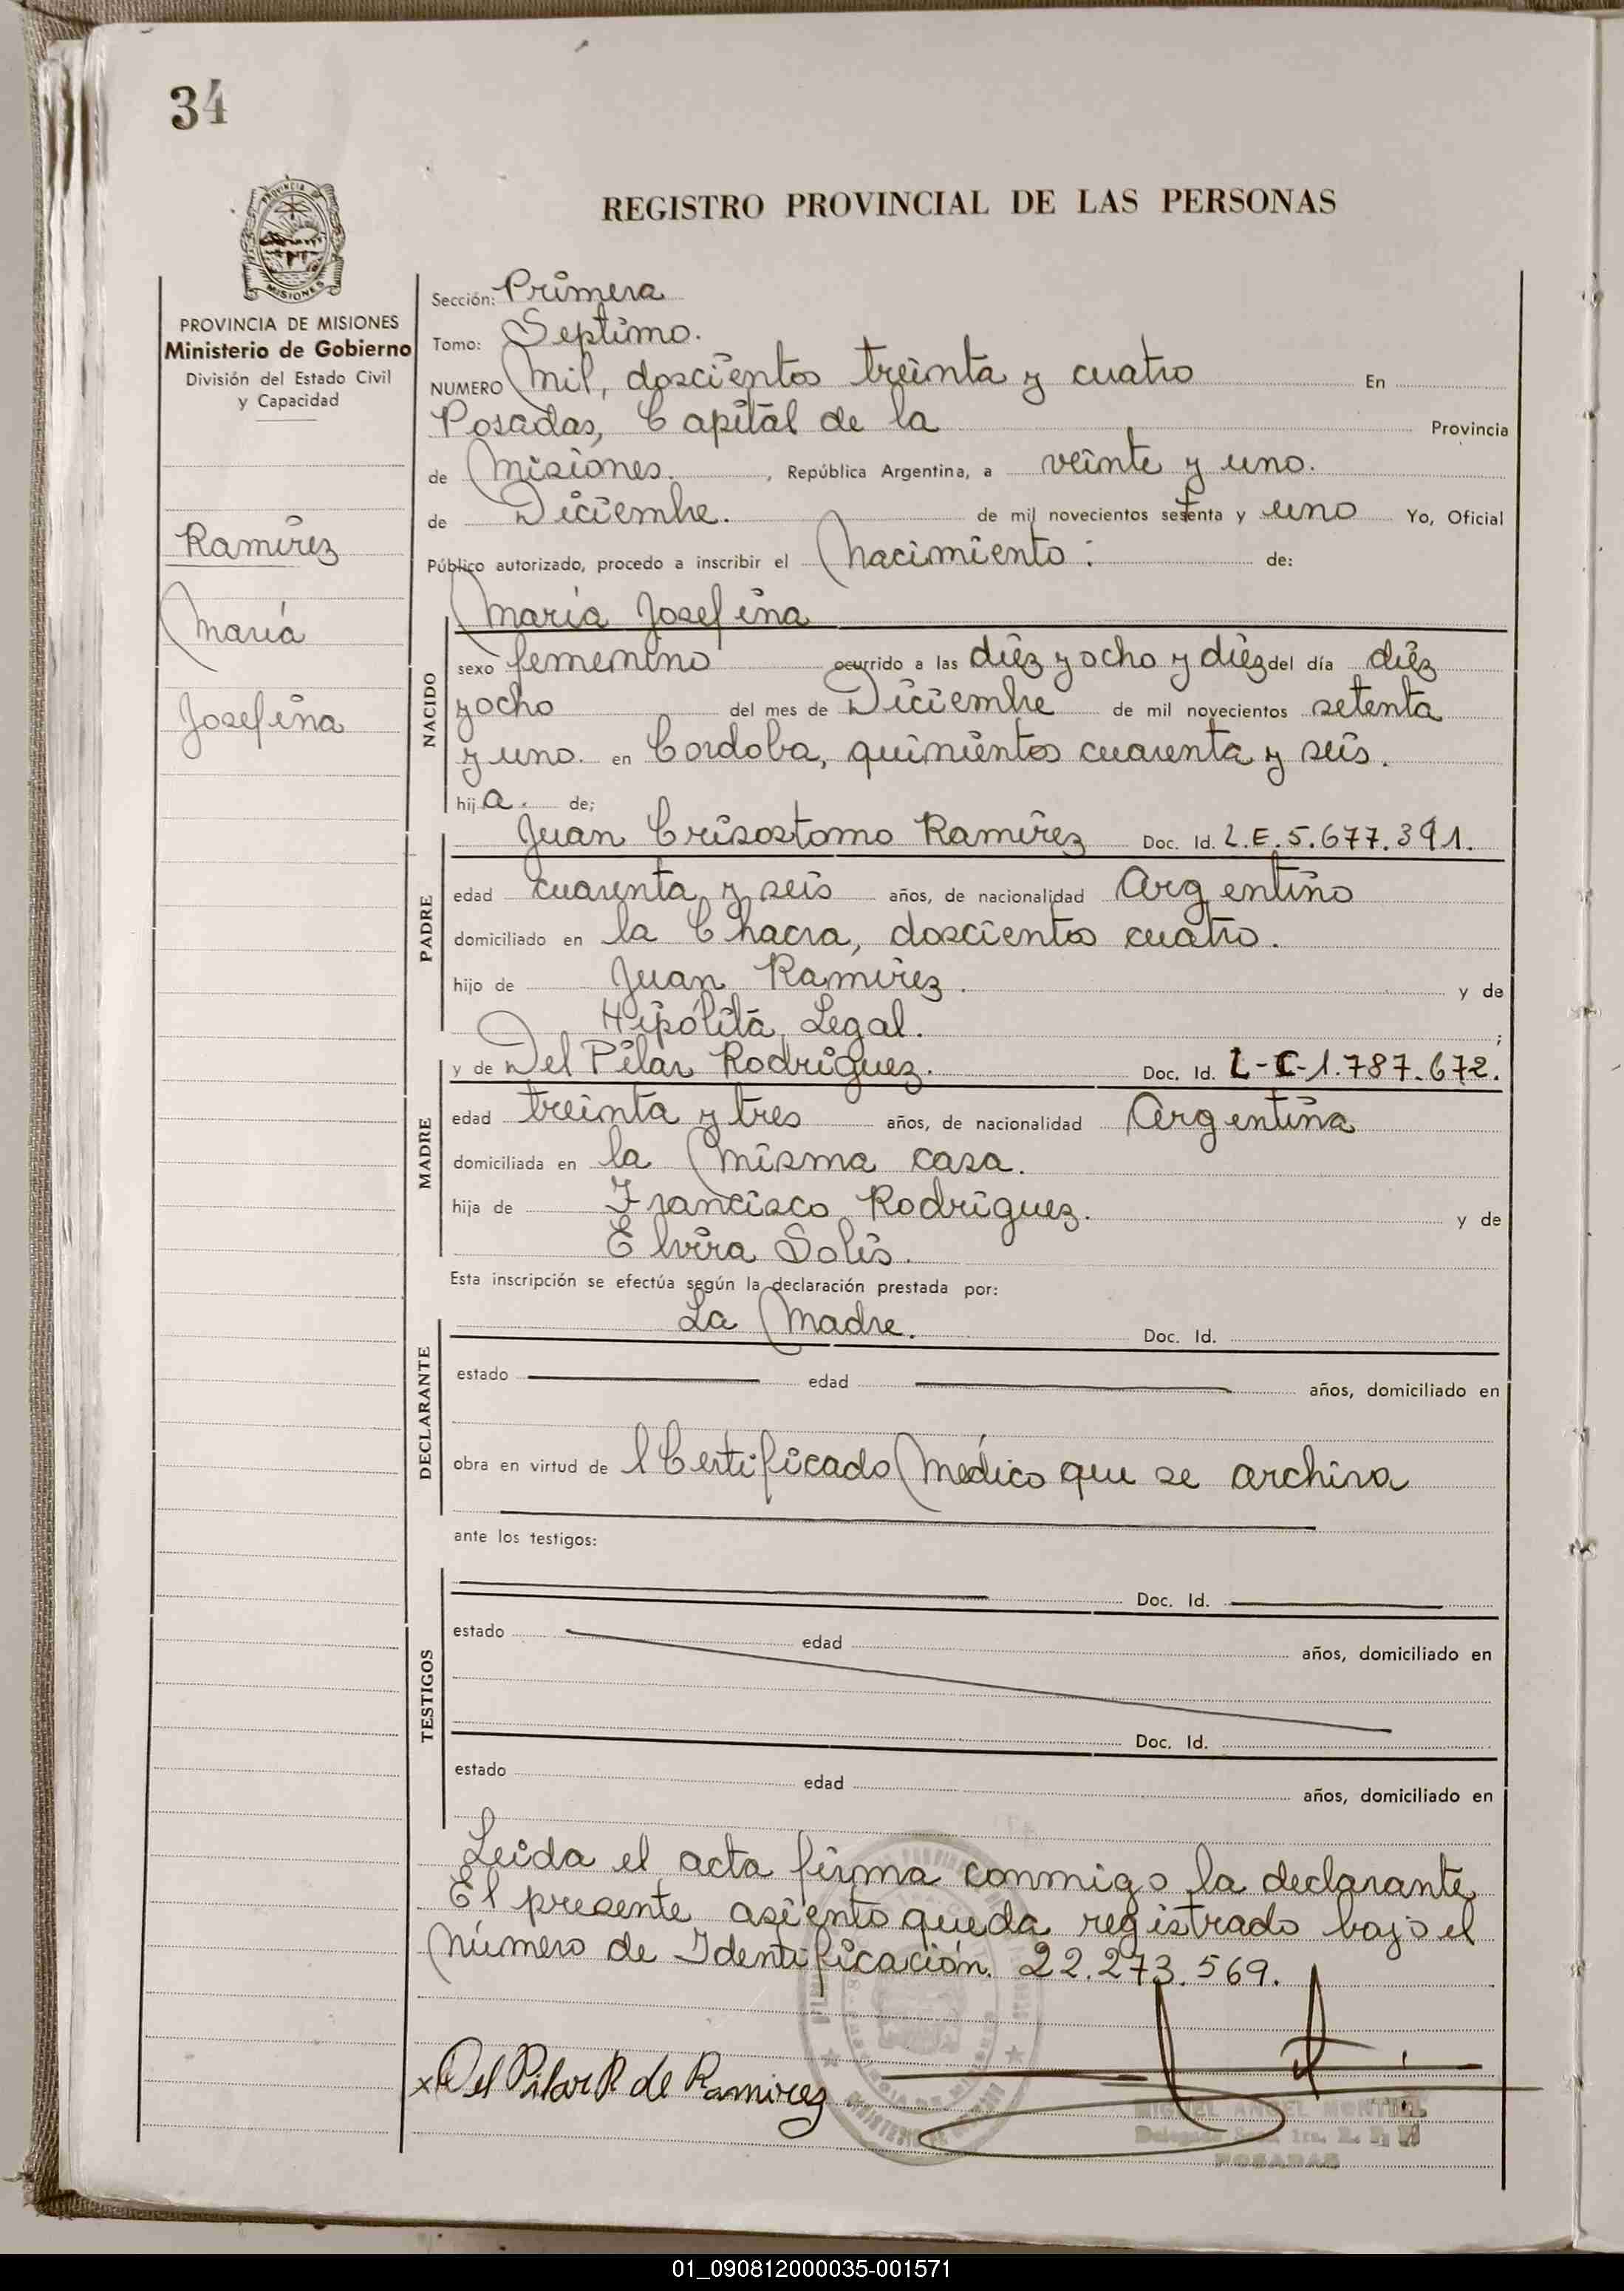 34
PROVINCIA DE
MISIONES
REGISTRO PROVINCIAL DE LAS PERSONAS
PROVINCIA DE MISIONES
Ministerio de Gobierno
División del Estado Civil
y Capacidad
Ramírez
María
Josefina
Sección: Primera
Tomo: Septimo.
NUMERO Mil, doscientos treinta y cuatro En
Posadas, Capital de la Provincia
de Misiones. , República Argentina, a veinte y uno.
de Diciembre. de mil novecientos setenta y uno Yo, Oficial
Público autorizado, procedo a inscribir el Nacimiento: de:
NACIDO
María Josefina
sexo femenino ocurrido a las diéz y ocho y diéz del día diéz
y ocho del mes de Diciembre de mil novecientos setenta
y uno. en Cordoba, quinientos cuarenta y seis.
hij a. de;
PADRE
Juan Crisostomo Ramírez Doc. Id. L.E. 5.677.391.
edad cuarenta y seis años, de nacionalidad Argentino
domiciliado en la Chacra, doscientos cuatro.
hijo de Juan Ramírez. y de
Hipólita Legal. ;
MADRE
y de Del Pilar Rodríguez. Doc. Id. L-C-1.787.672.
edad treinta y tres años, de nacionalidad Argentina
domiciliada en la misma casa.
hija de Francisco Rodríguez. y de
Elvira Solis.
Esta inscripción se efectúa según la declaración prestada por:
DECLARANTE
La Madre. Doc. Id.
estado edad años, domiciliado en
obra en virtud de l Certificado Médico que se archiva
ante los testigos:
TESTIGOS
Doc. Id.
estado edad años, domiciliado en
Doc. Id.
estado edad años, domiciliado en
Leida el acta firma conmigo la declarante
El presente asiento queda registrado bajo el
Número de Identificación. 22.273.569.
x Del Pilar R de Ramirez
MIGUEL ANGEL MONTIEL
POSADAS
01_090812000035-001571